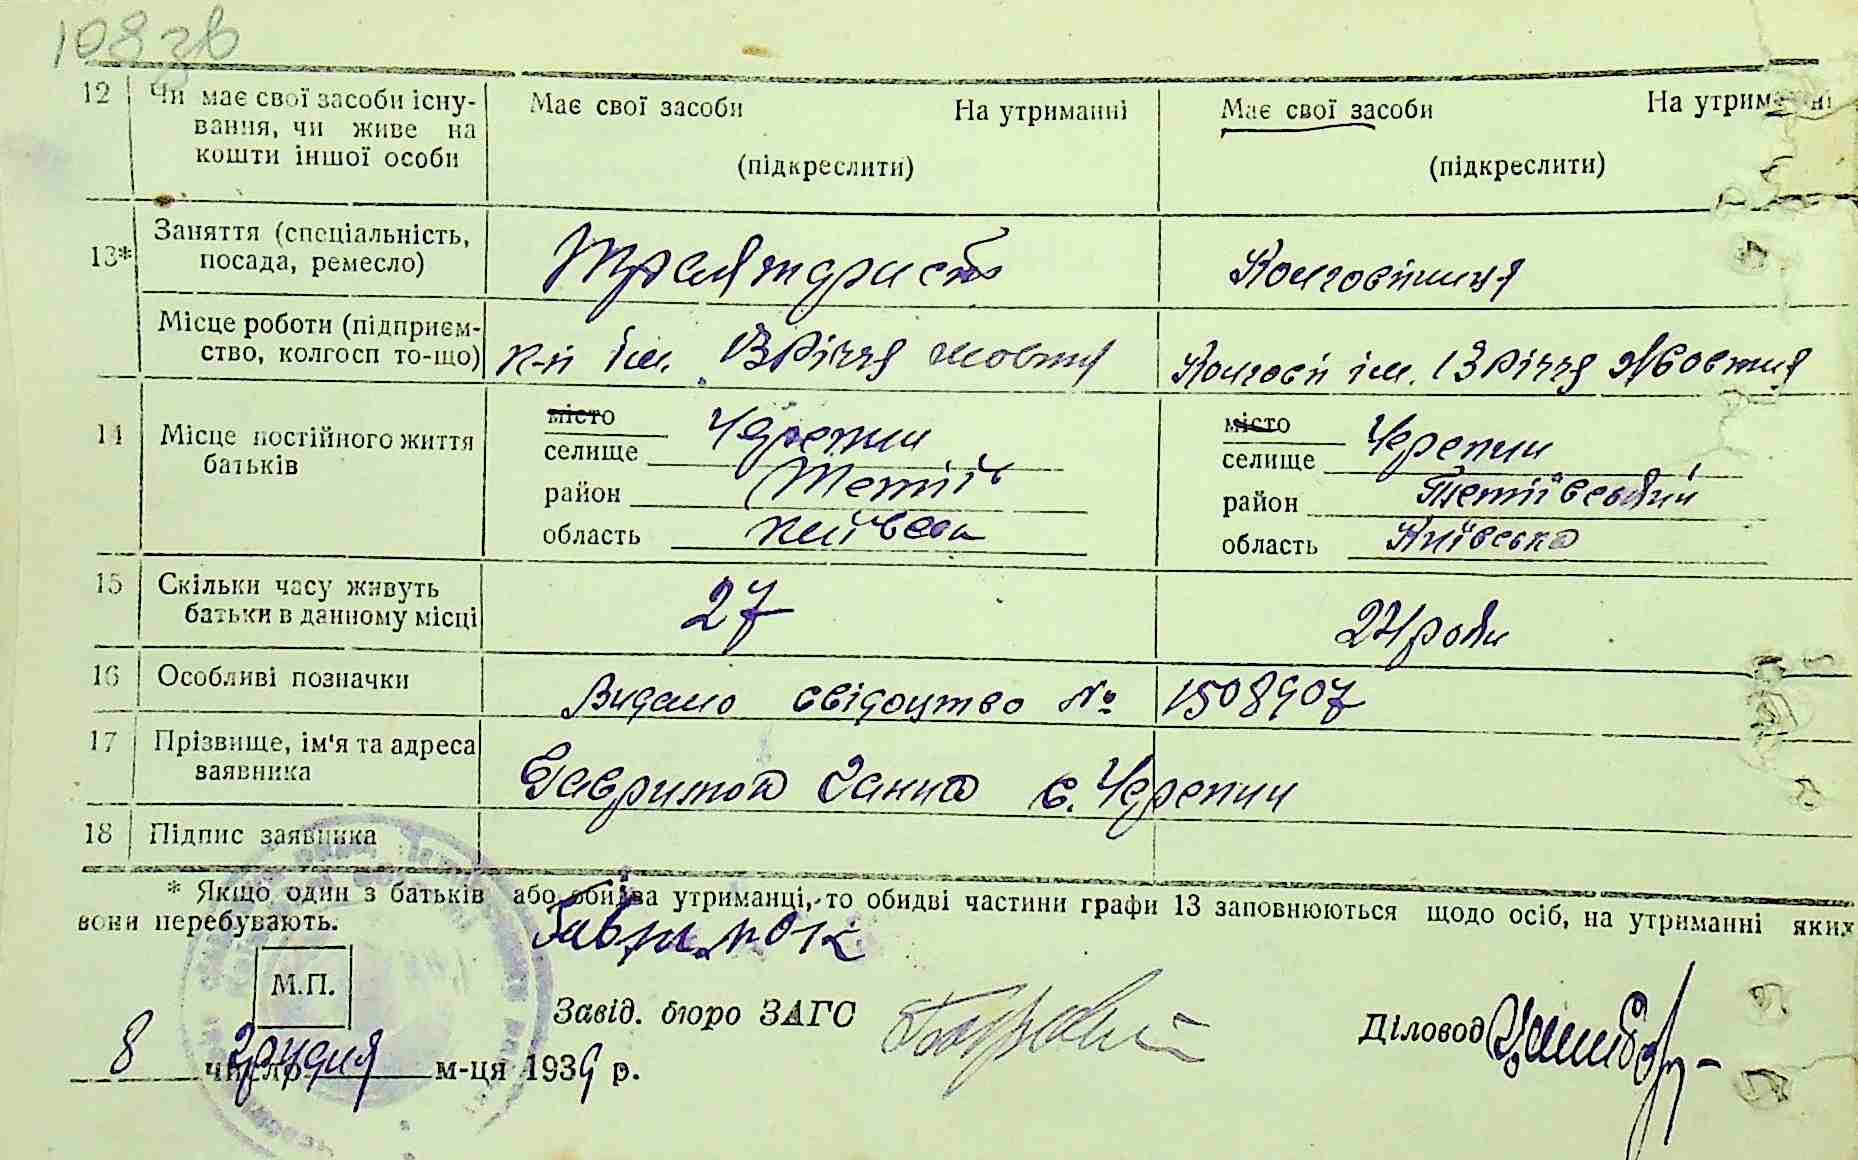 108 зв
12 Чи має свої засоби існу- Має свої засоби На утриманні Має свої засоби На утриманні
вання, чи живе на
кошти іншої особи (підкреслити) (підкреслити)
13* Заняття (спеціальність, Трактарист Колгоспниця
посада, ремесло)
Місце роботи (підприєм-
ство, колгосп то-що) к-п ім. 13 річчя жовтня Колгосп ім. 13 річчя Жовтня
14 Місце постійного життя місто місто
батьків селище Черепин селище Черепин
район Тетіїв район Тетіївський
область Київськ область Київська
15 Скільки часу живуть 27 24 роки
батьки в данному місці
16 Особливі позначки Видано свідоцтво № 1508907
17 Прізвище, ім'я та адреса
заявника Гавримок Ганна с. Черепин
18 Підпис заявника
* Якщо один з батьків або обидва утриманці, то обидві частини графи 13 заповнюються щодо осіб, на утриманні яких
вони перебувають.
Гавримок
М.П.
Завід. бюро ЗАГС Діловод
8 числа грудня м-ця 1939 р.